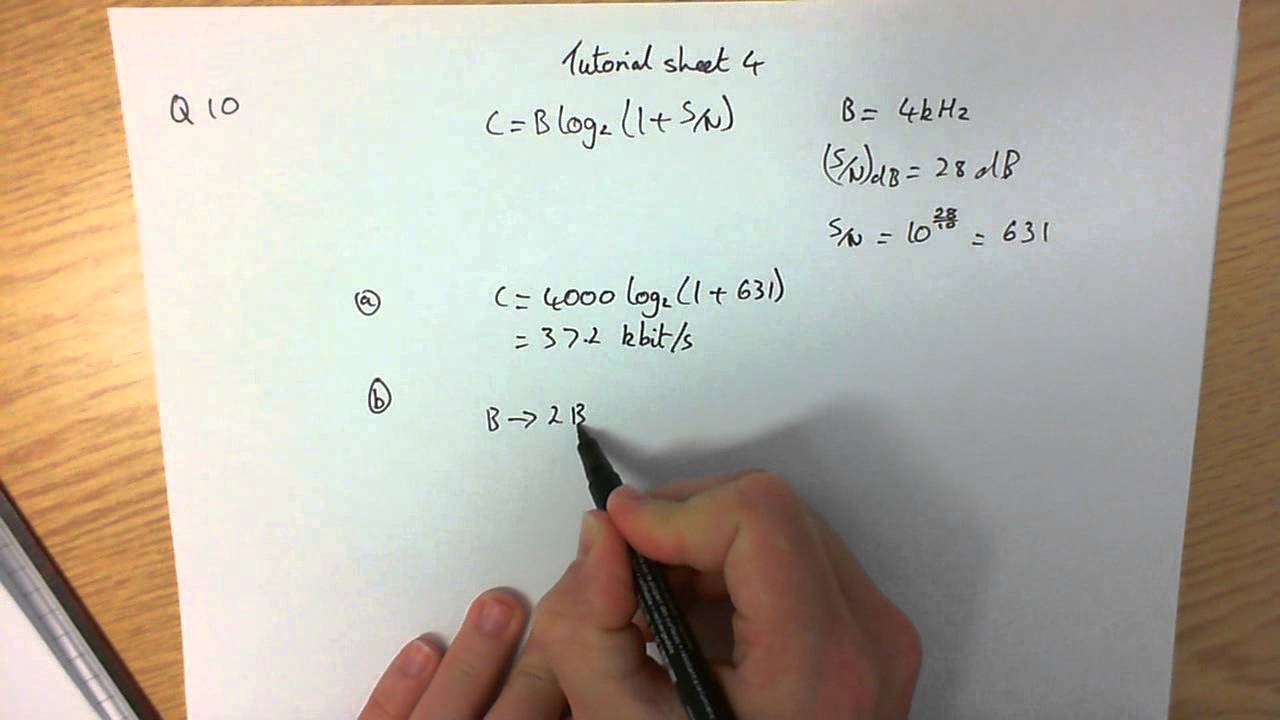 Tutorial sheet 4
Q 10
C = B log₂ (1 + S/N)
B = 4kHz
(S/N)dB = 28 dB
S/N = 10^(28/10) = 631
(a) C = 4000 log₂ (1 + 631)
= 37.2 kbit/s
(b) B → 2B